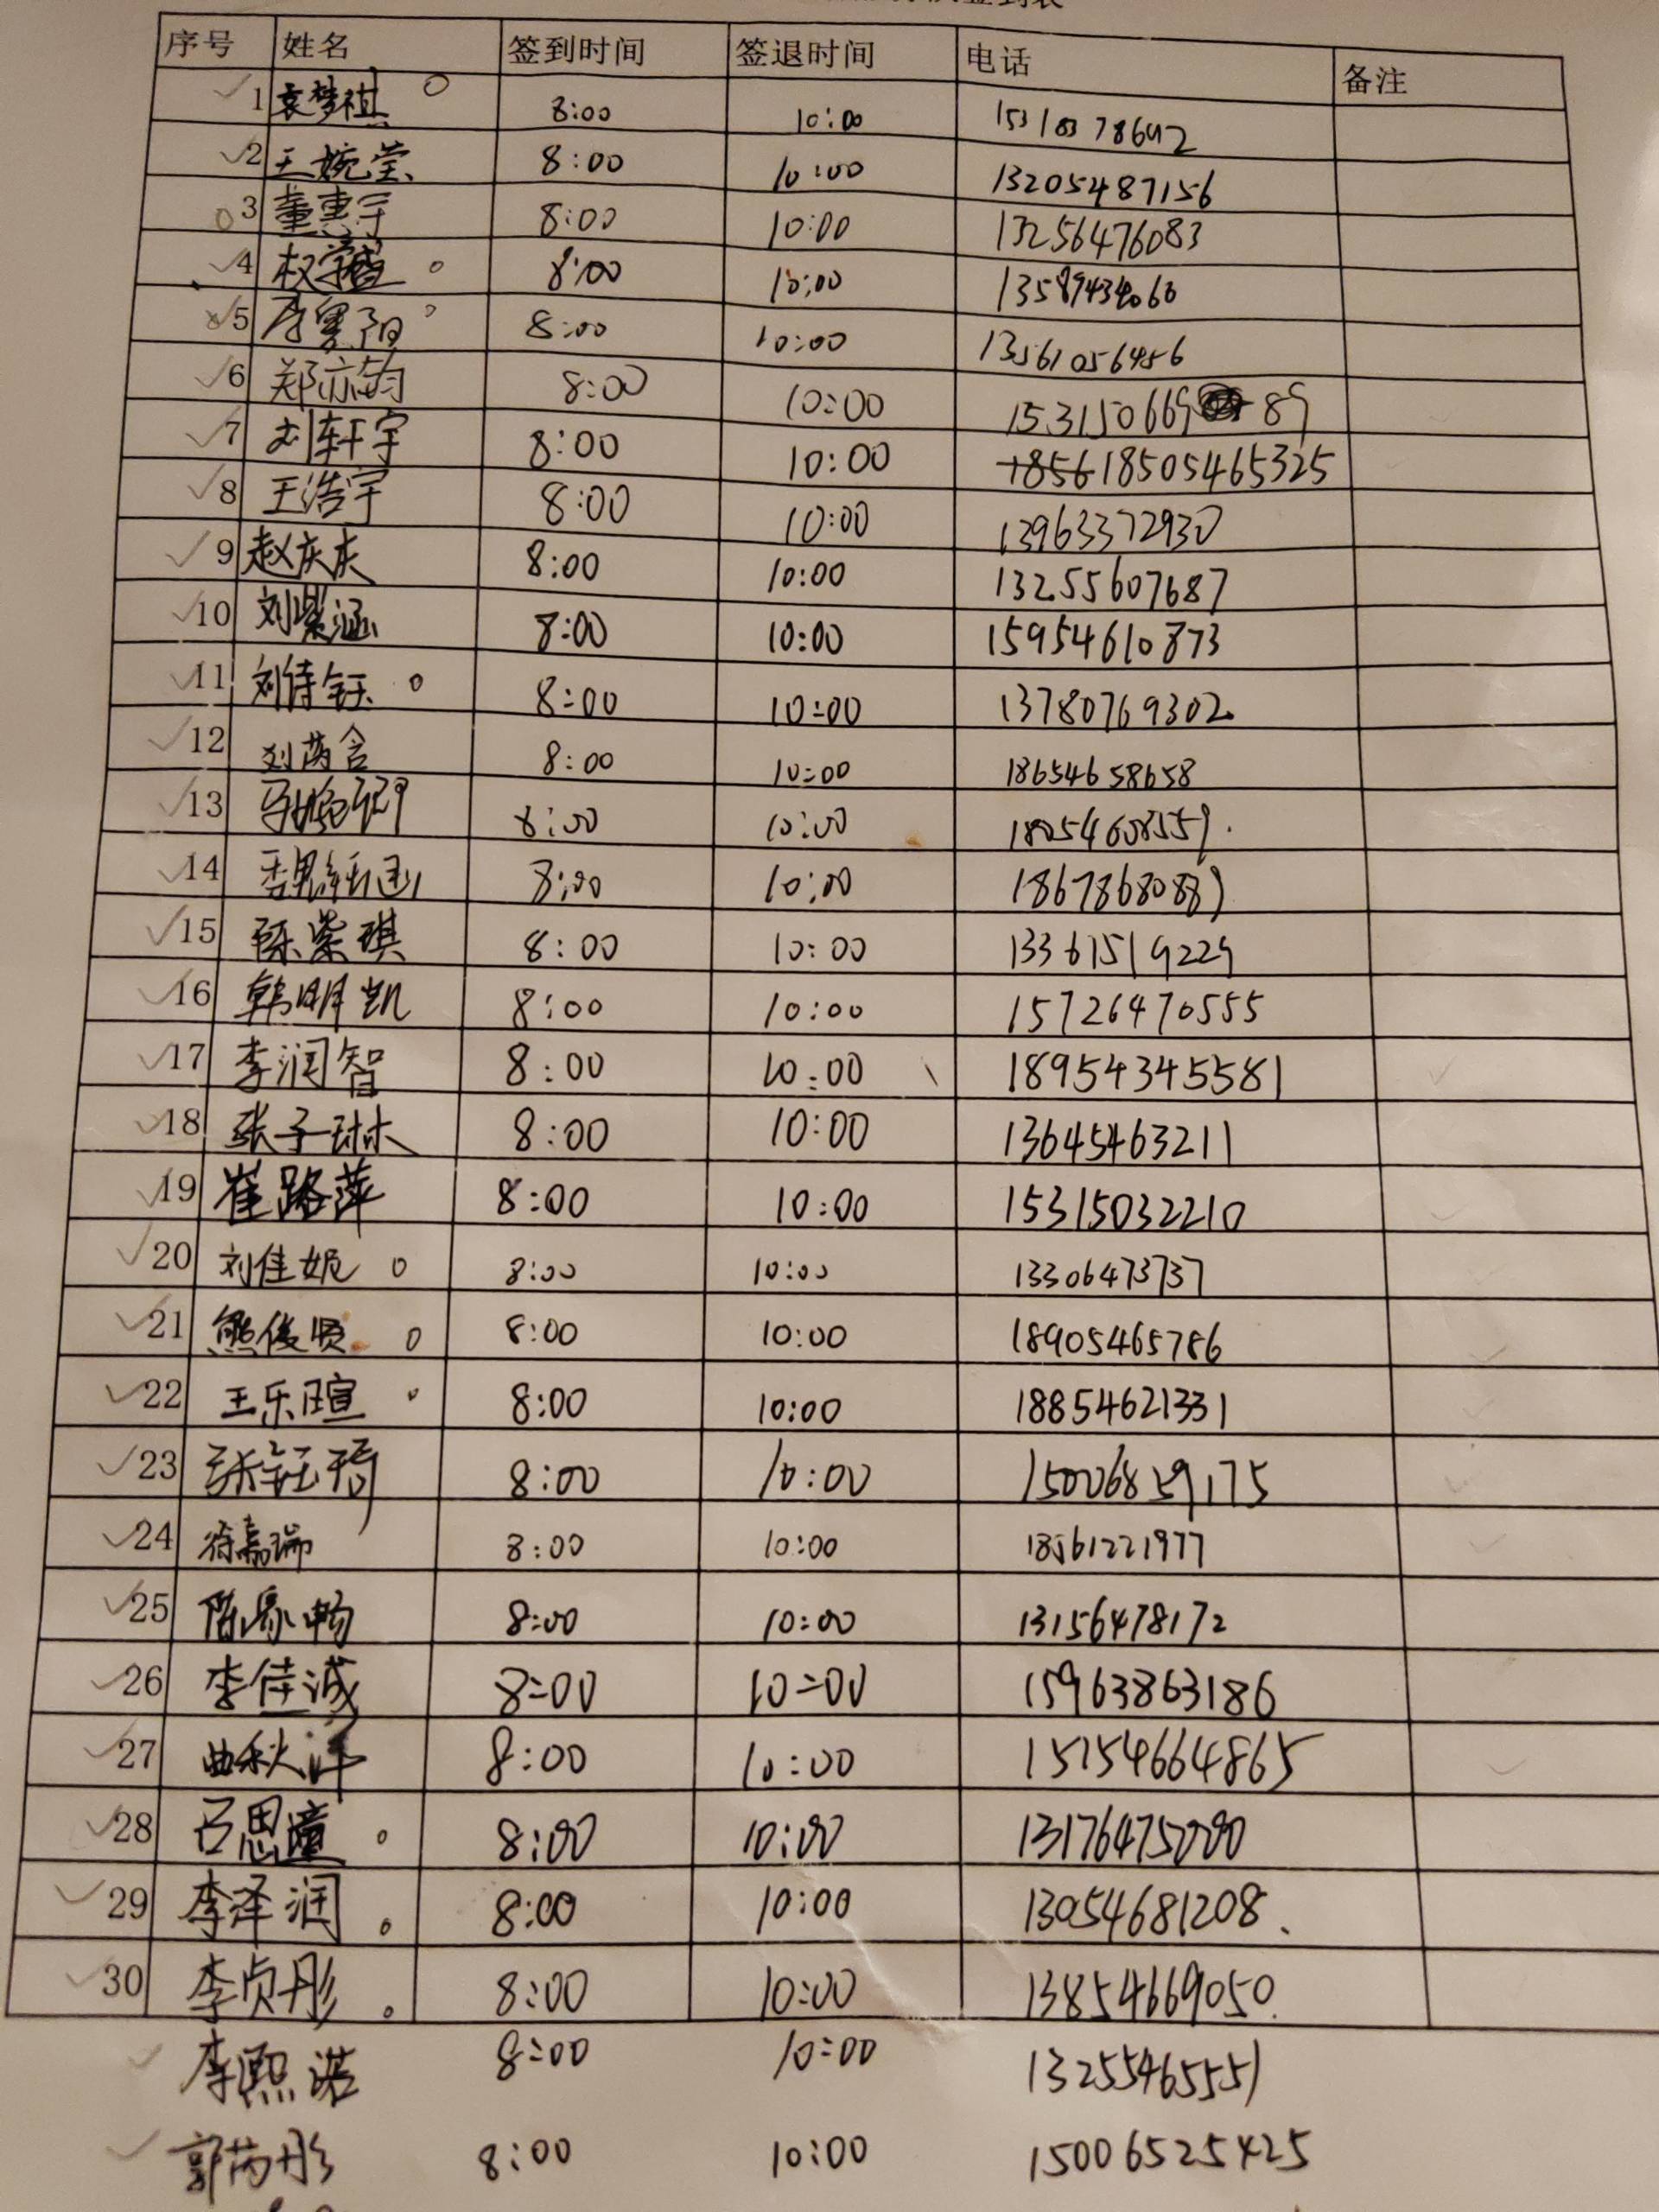 签到表
序号 姓名 签到时间 签退时间 电话 备注
1 袁梦祺 8:00 10:00
2 王婉莹 8:00 10:00 13205487156
3 董惠宇 8:00 10:00 13256476083
4 8:00 10:00
5 8:00 10:00 13561056456
6 郑亦韵 8:00 10:00 15315066989
7 刘轩宇 8:00 10:00 18505465325
8 王浩宇 8:00 10:00 13963372930
9 赵庆庆 8:00 10:00 13255607687
10 刘紫涵 8:00 10:00 15954610873
11 刘诗钰 8:00 10:00 13780769302
12 刘芮含 8:00 10:00 18654658658
13 8:00 10:00
14 8:00 10:00
15 陈紫琪 8:00 10:00 13361519229
16 韩明凯 8:00 10:00 15726470555
17 李润智 8:00 10:00 18954345581
18 张子琳 8:00 10:00 13645463211
19 崔路萍 8:00 10:00 15315032210
20 刘佳妮 8:00 10:00 13306473737
21 熊俊贤 8:00 10:00 18905465786
22 王乐暄 8:00 10:00 18854621331
23 张钰琦 8:00 10:00 15006859175
24 徐嘉瑞 8:00 10:00 18561221977
25 8:00 10:00 13156478172
26 李佳诚 8:00 10:00 15963863186
27 曲秋洋 8:00 10:00 15154664865
28 吕思瞳 8:00 10:00 13176475090
29 李泽润 8:00 10:00 13054681208
30 李贞彤 8:00 10:00 13854669050
李熙诺 8:00 10:00 13255465551
郭芮彤 8:00 10:00 15006525425